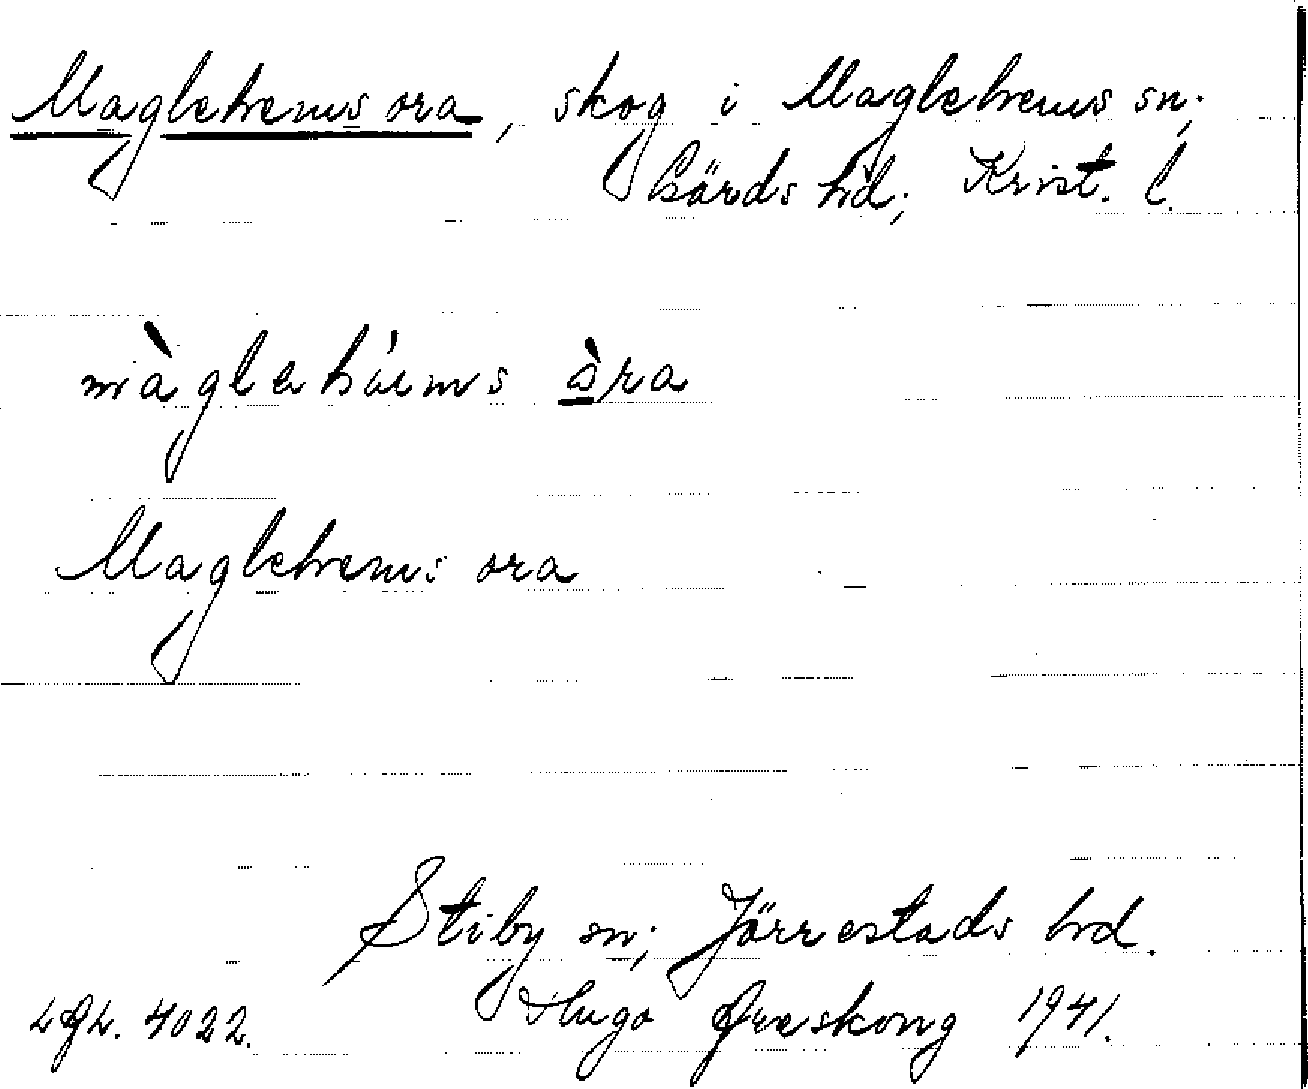 Maglehems ora, skog i Maglehems sn;
Gärds hd; Krist. l.
màglahàems òra
Maglehems ora
Stiby sn; Järrestads hd.
Hugo Areskoug 1941.
4022.